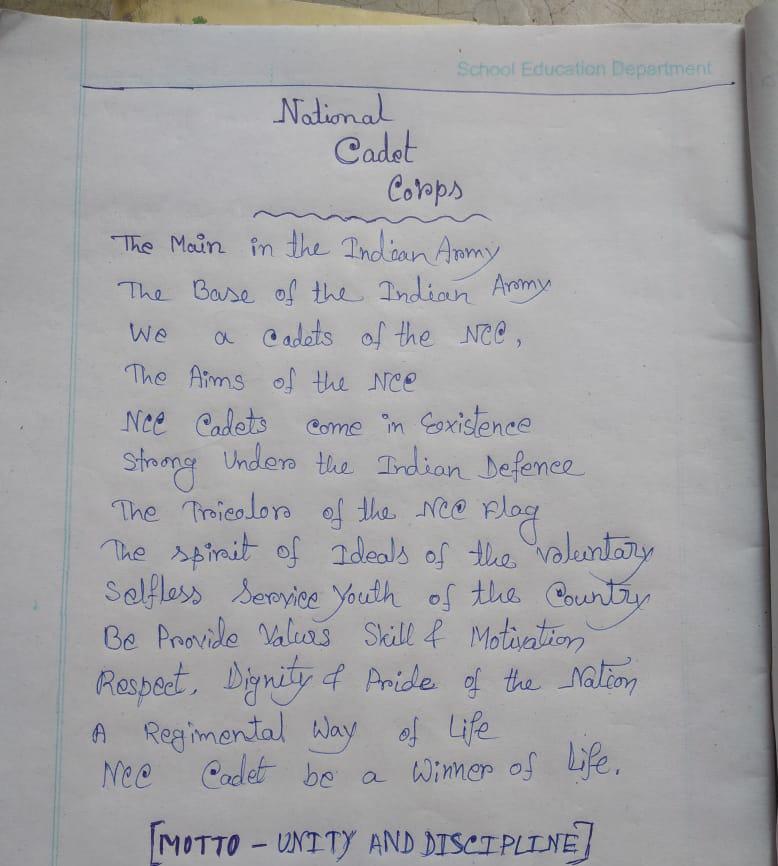 School Education Department
National
Cadet
Corps
The Main in the Indian Army
The Base of the Indian Army
We a Cadets of the NCC,
The Aims of the NCC
NCC Cadets come in Existence
Strong Under the Indian Defence
The Tricolor of the NCC Flag
The spirit of Ideals of the voluntary
Selfless Service Youth of the Country
Be Provide Values Skill & Motivation
Respect, Dignity & Pride of the Nation
A Regimental Way of Life
NCC Cadet be a Winner of Life.
[MOTTO – UNITY AND DISCIPLINE]